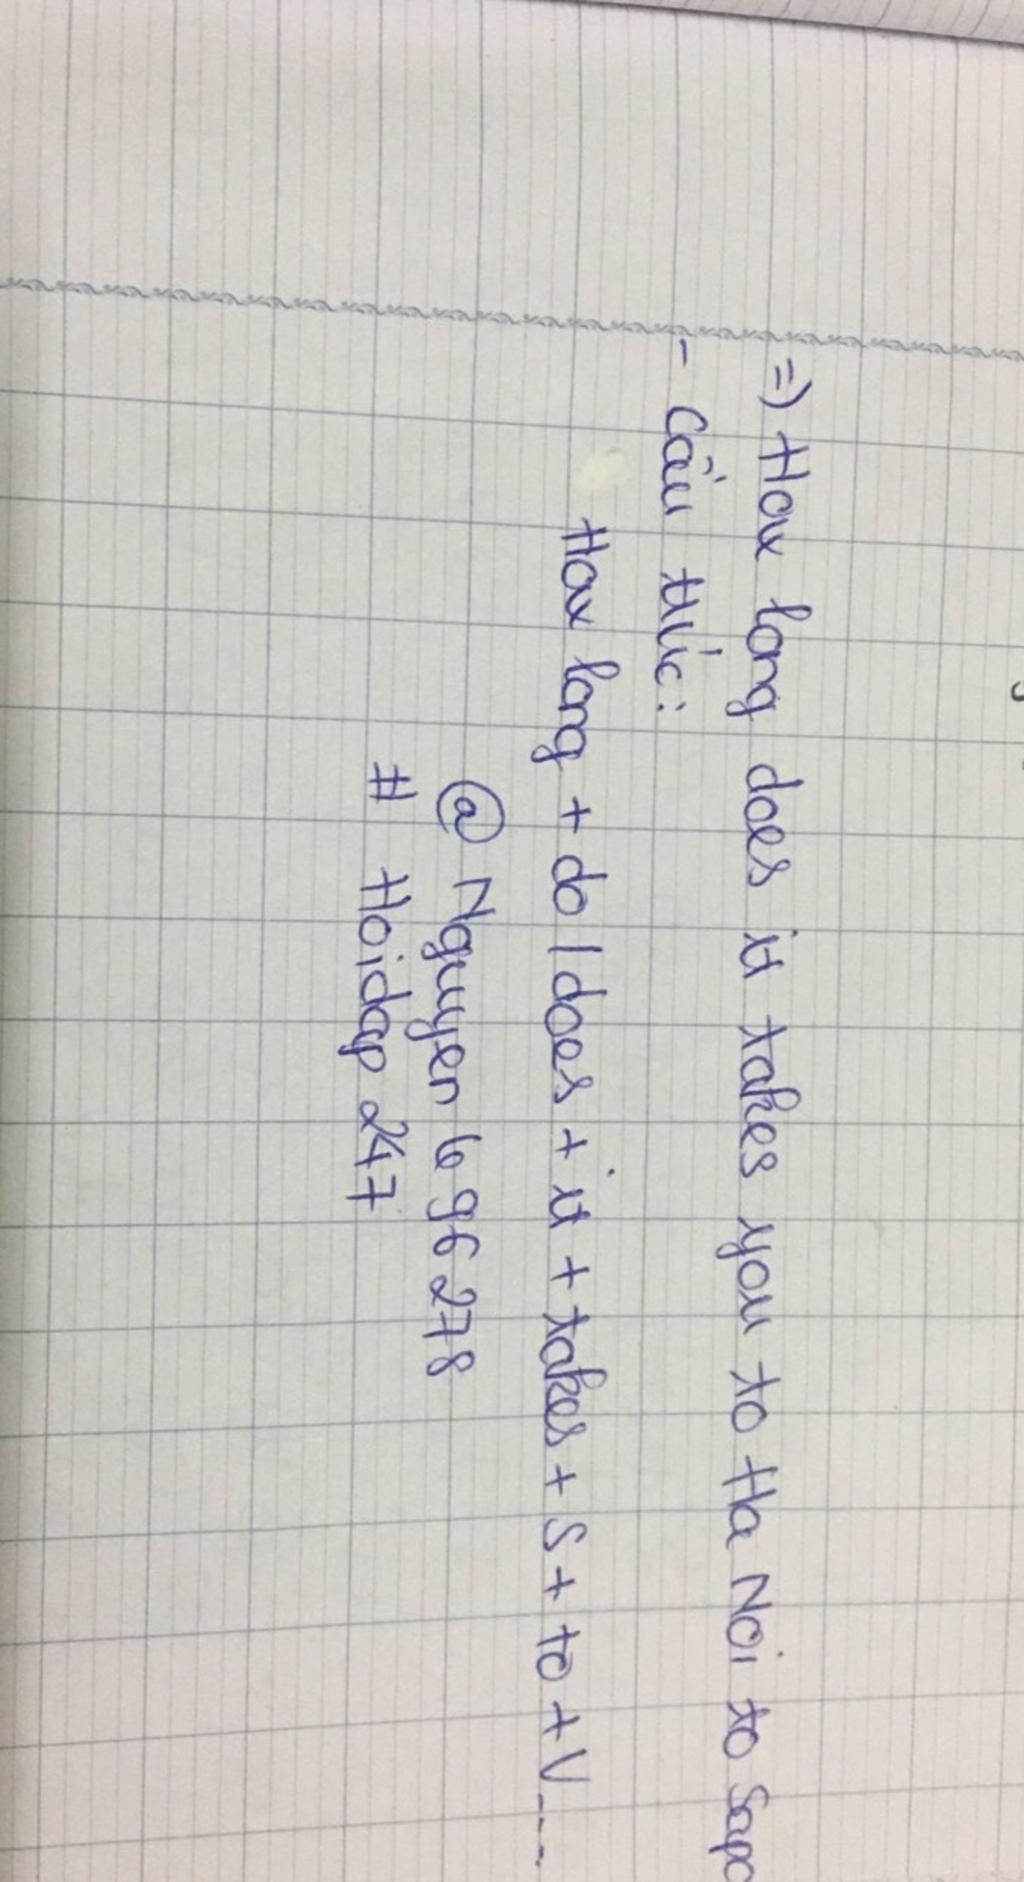 =) How long does it takes you to Ha Noi to Sapa
- Cấu thức:
How long + do / does + it + takes + S + to + V....
@ Nguyen le 96 278
# Hoidap 247